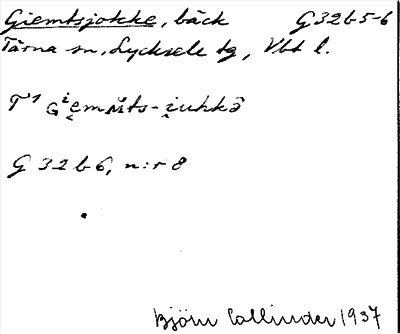 Giemtsjokke, bäck G32b5-6
Tärna sn, Lycksele tg, Vbt l.
G 32 b 6, n:r 8
Björn Collinder 1937